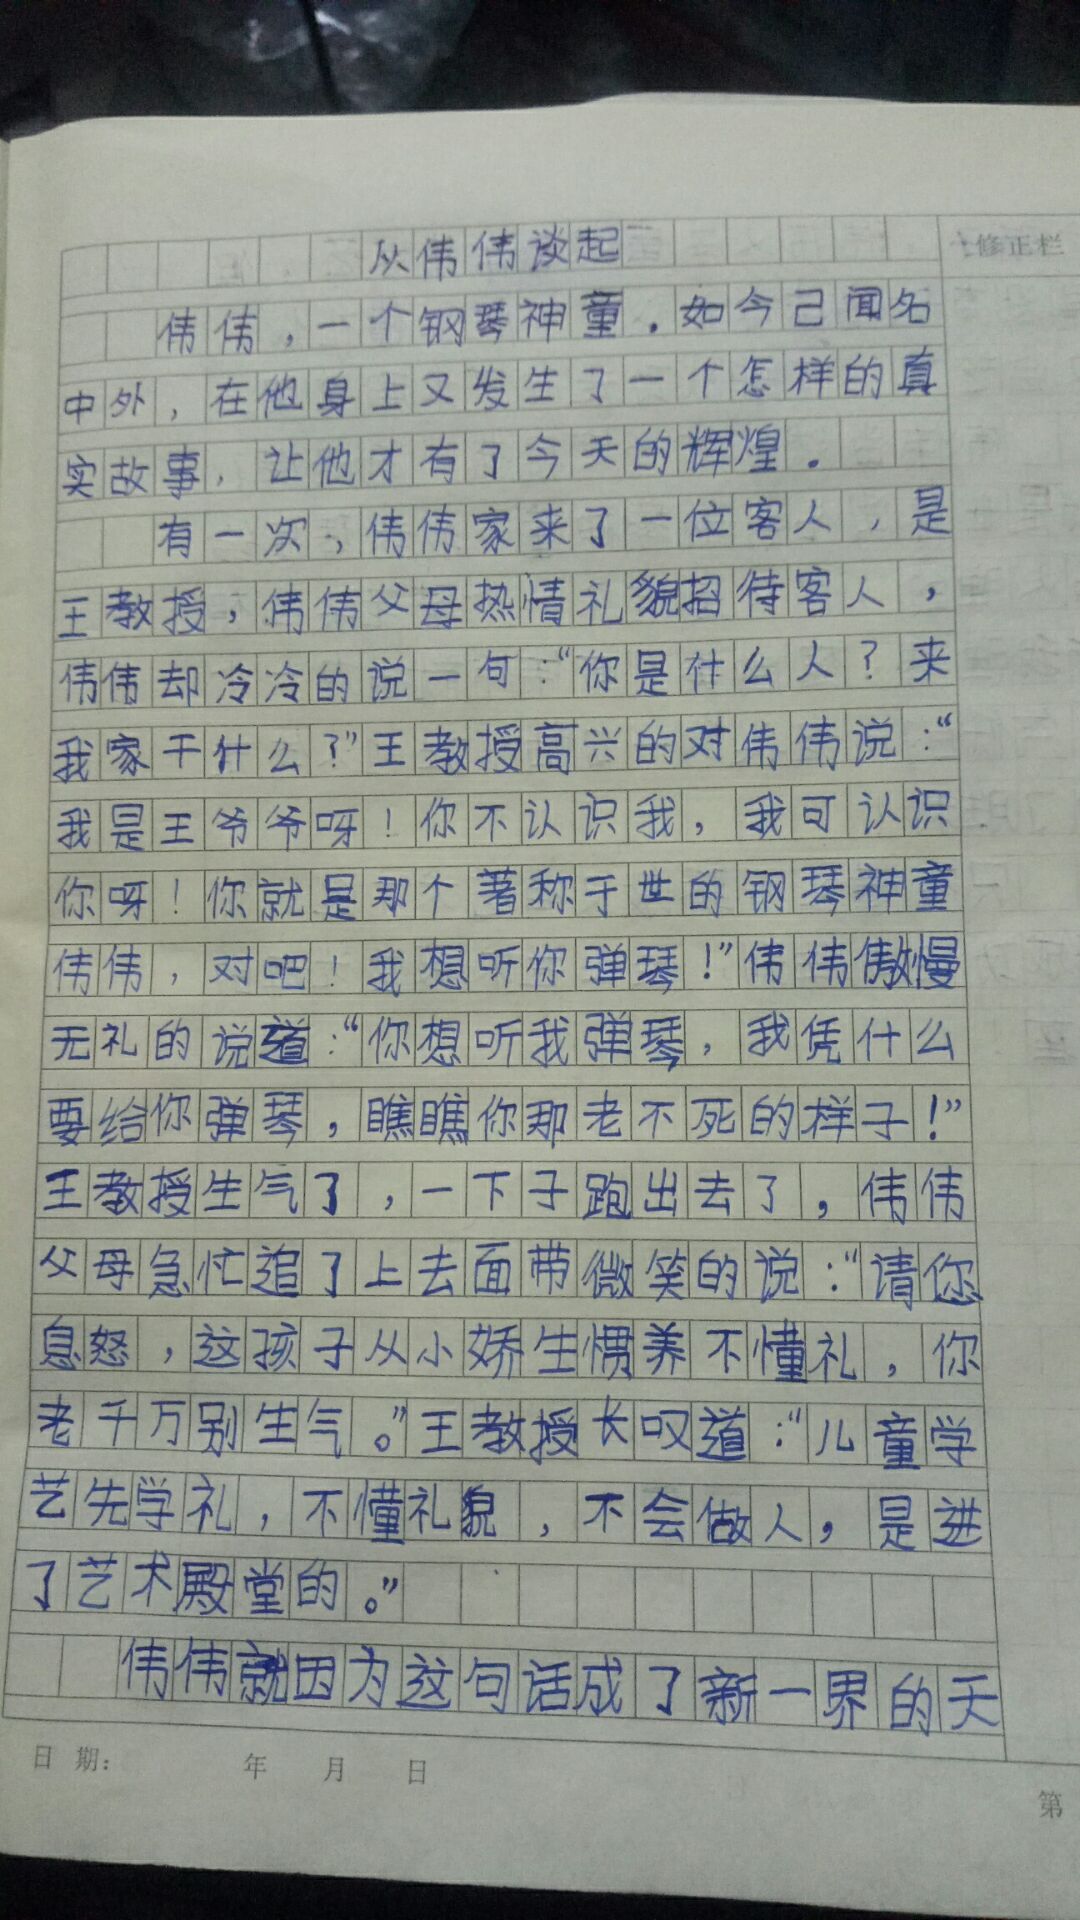 从伟伟谈起
修正栏
伟伟，一个钢琴神童．如今己闻名
中外，在他身上又发生了一个怎样的真
实故事，让他才有了今天的辉煌．
有一次，伟伟家来了一位客人，是
王教授，伟伟父母热情礼貌招待客人，
伟伟却冷冷的说一句：“你是什么人？来
我家干什么？”王教授高兴的对伟伟说：“
我是王爷爷呀！你不认识我，我可认识
你呀！你就是那个著称于世的钢琴神童
伟伟，对吧！我想听你弹琴！”伟伟傲慢
无礼的说道：“你想听我弹琴，我凭什么
要给你弹琴，瞧瞧你那老不死的样子！”
王教授生气了，一下子跑出去了，伟伟
父母急忙追了上去面带微笑的说：“请您
息怒，这孩子从小娇生惯养不懂礼，你
老千万别生气。”王教授长叹道：“儿童学
艺先学礼，不懂礼貌，不会做人，是进
了艺术殿堂的。”
伟伟就因为这句话成了新一界的天
日期： 年 月 日
第